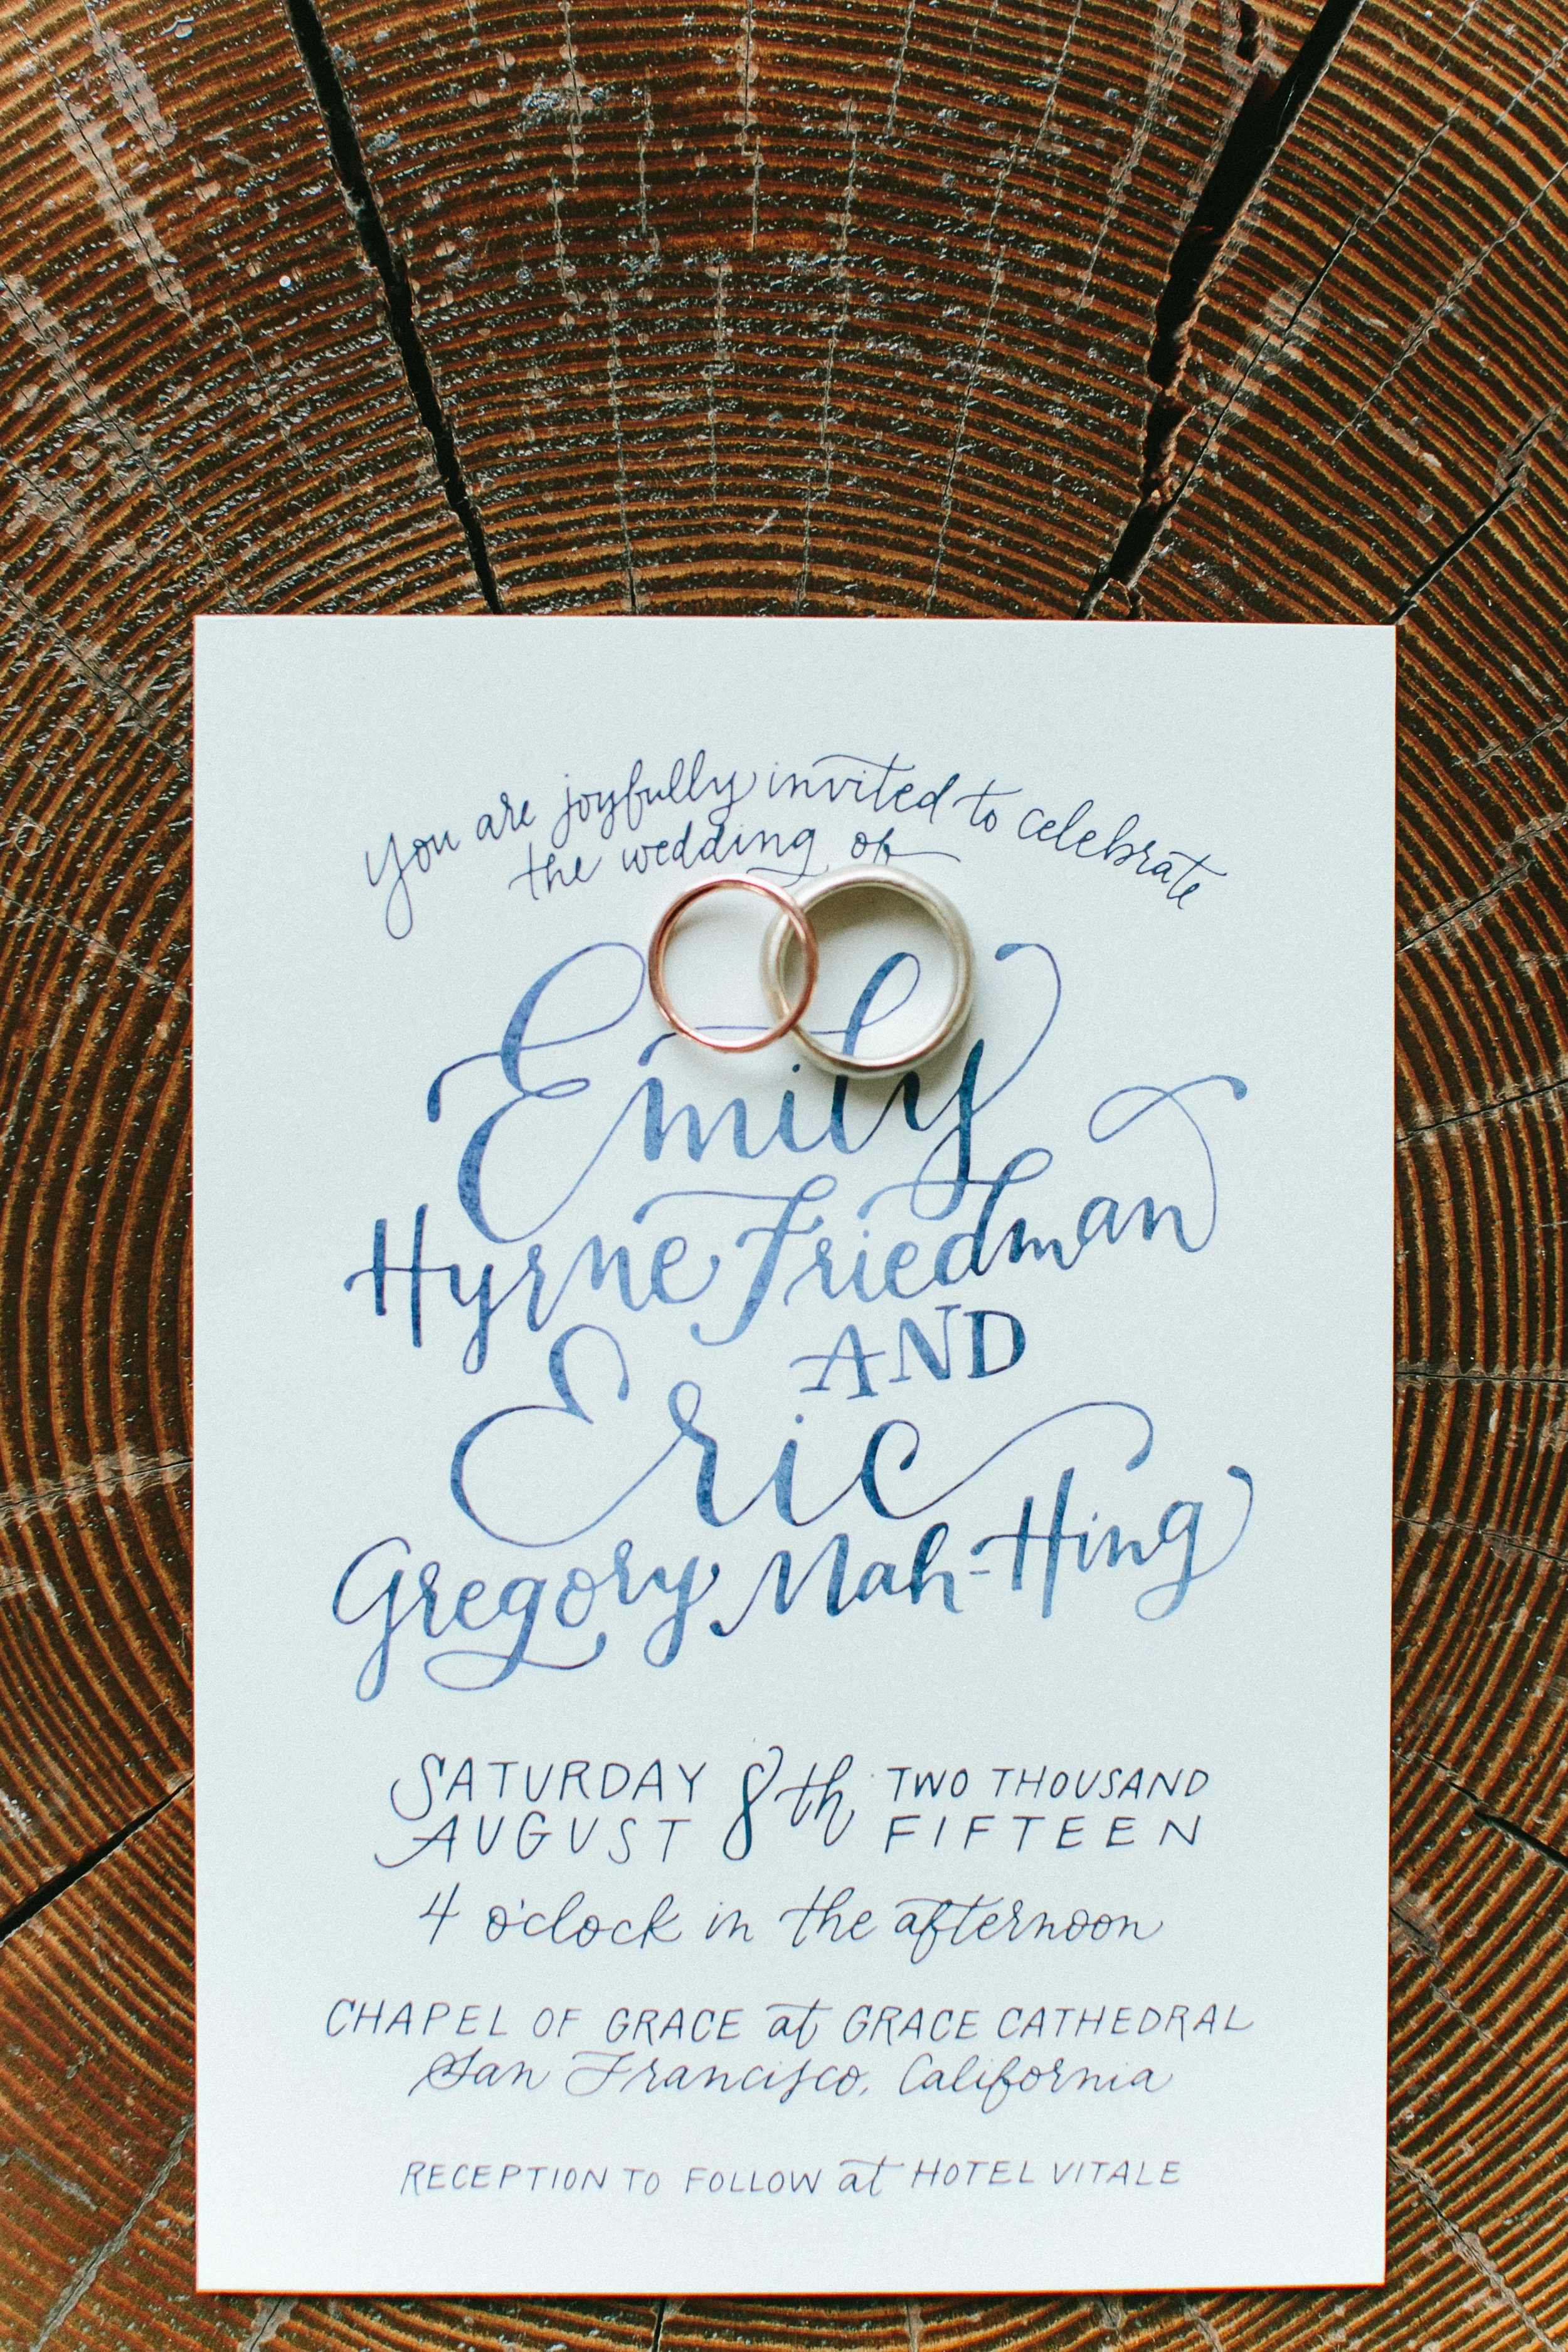 you are joyfully invited to celebrate
the wedding of
Emily
Hyrne Friedman
AND
Eric
Gregory Mah-Hing
SATURDAY 8th TWO THOUSAND
AUGUST FIFTEEN
4 o'clock in the afternoon
CHAPEL OF GRACE at GRACE CATHEDRAL
San Francisco, California
RECEPTION TO FOLLOW at HOTEL VITALE